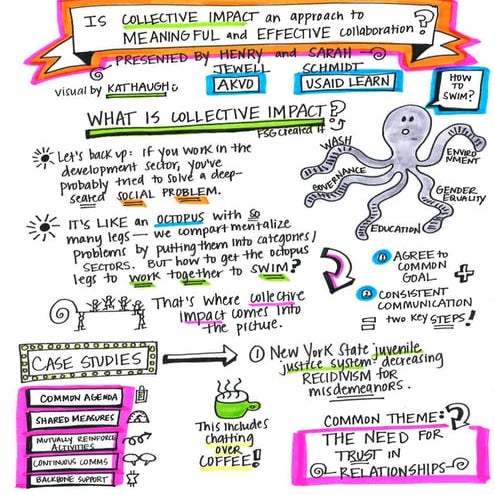 IS COLLECTIVE IMPACT an approach to
MEANINGFUL and EFFECTIVE collaboration?
PRESENTED BY HENRY and SARAH
JEWELL SCHMIDT
AKVO USAID LEARN
visual by KATHAUGH
HOW TO SWIM?
WHAT IS COLLECTIVE IMPACT?
FSG created it
Let's back up: If you work in the
development sector, you've
probably tried to solve a deep-
seated SOCIAL PROBLEM.
WASH
GOVERNANCE
ENVIRONMENT
GENDER EQUALITY
EDUCATION
IT'S LIKE an OCTOPUS with so
many legs — we compartmentalize
problems by putting them into categories/
SECTORS. BUT how to get the octopus
legs to work together to SWIM?
That's where collective
impact comes into
the picture.
① AGREE to
COMMON
GOAL +
② CONSISTENT
COMMUNICATION
= two key STEPS!
CASE STUDIES
① New York State juvenile
justice system: decreasing
RECIDIVISM for
misdemeanors.
COMMON AGENDA
SHARED MEASURES
MUTUALLY REINFORCE
ACTIVITIES
CONTINUOUS COMMS
BACKBONE SUPPORT
This includes
chatting
over
COFFEE!
COMMON THEME:?
THE NEED FOR
TRUST IN
RELATIONSHIPS